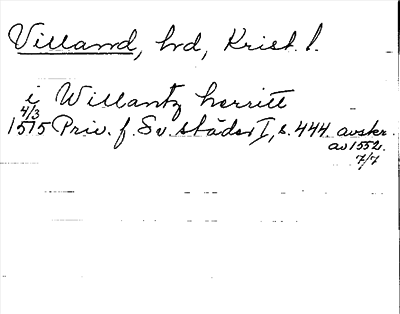 Villand, hd, Krist. l.
i Willantz herritt
4/3
1515 Priv. f. Sv. städer I, s. 444 avskr.
av 1552.
7/7